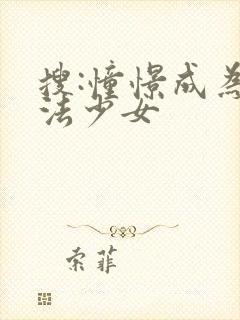 搜:憧憬成為
法少女
索菲